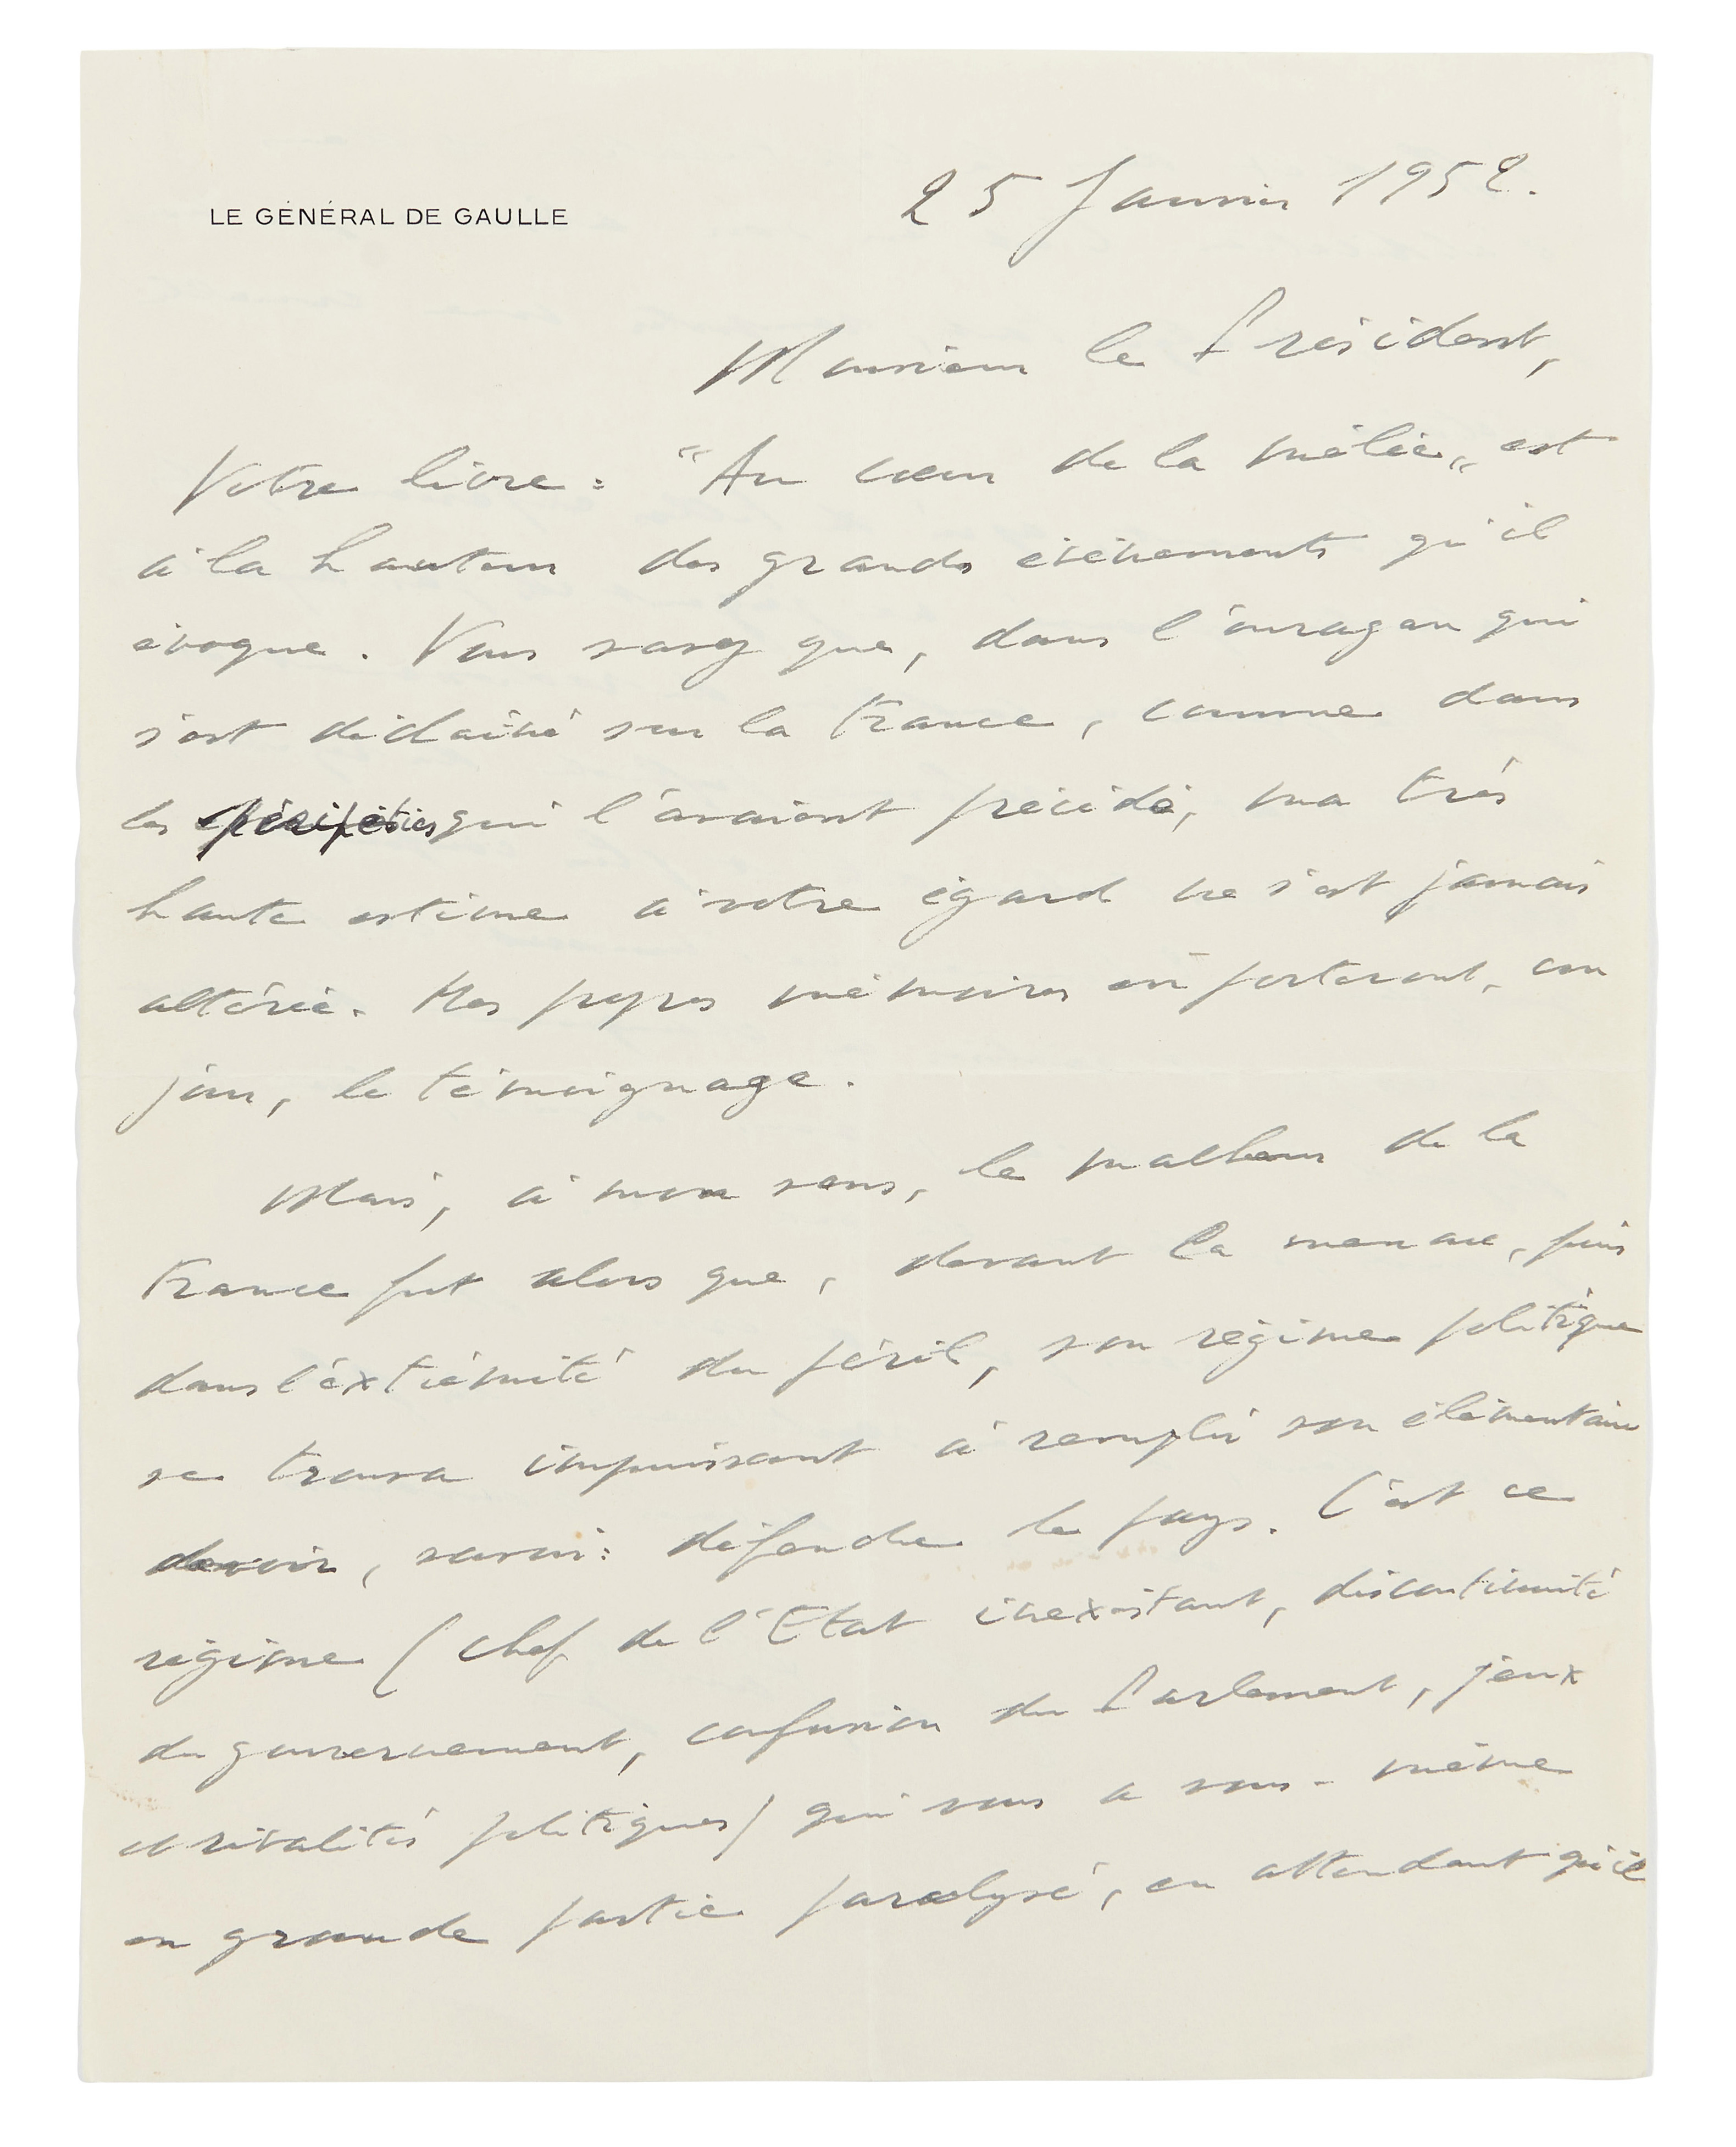 LE GÉNÉRAL DE GAULLE
25 Janvier 1952.
Monsieur le Président,
Votre livre : "Au cœur de la mêlée" est
à la hauteur des grands événements qu'il
évoque. Vous savez que, dans l'ouragan qui
s'est déchaîné sur la France, comme dans
les péripéties qui l'avaient précédé, ma très
haute estime à votre égard ne s'est jamais
altérée. Mes propres mémoires en porteront, un
jour, le témoignage.
Mais, à mon sens, le malheur de la
France fut alors que, devant la menace, puis
dans l'éxtrémité du péril, son régime politique
se trouva impuissant à remplir son élémentaire
devoir, savoir : défendre le pays. C'est ce
régime (chef de l'Etat inexistant, discontinuité
du gouvernement, confusion du Parlement, jeux
et rivalités politiques) qui vous a vous-même
en grande partie paralysé, en attendant qu'il